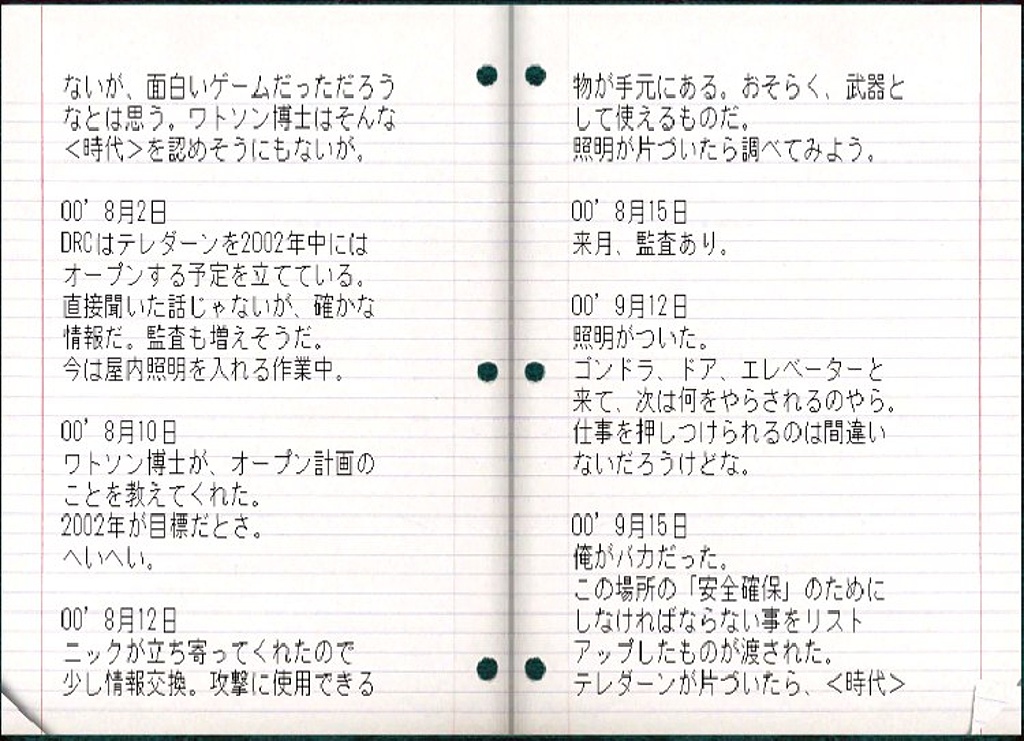 ないが、面白いゲームだっただろう
なとは思う。ワトソン博士はそんな
＜時代＞を認めそうにもないが。
00’ 8月2日
DRCはテレダーンを2002年中には
オープンする予定を立てている。
直接聞いた話じゃないが、確かな
情報だ。監査も増えそうだ。
今は屋内照明を入れる作業中。
00’ 8月10日
ワトソン博士が、オープン計画の
ことを教えてくれた。
2002年が目標だとさ。
へいへい。
00’ 8月12日
ニックが立ち寄ってくれたので
少し情報交換。攻撃に使用できる
物が手元にある。おそらく、武器と
して使えるものだ。
照明が片づいたら調べてみよう。
00’ 8月15日
来月、監査あり。
00’ 9月12日
照明がついた。
ゴンドラ、ドア、エレベーターと
来て、次は何をやらされるのやら。
仕事を押しつけられるのは間違い
ないだろうけどな。
00’ 9月15日
俺がバカだった。
この場所の「安全確保」のために
しなければならない事をリスト
アップしたものが渡された。
テレダーンが片づいたら、＜時代＞